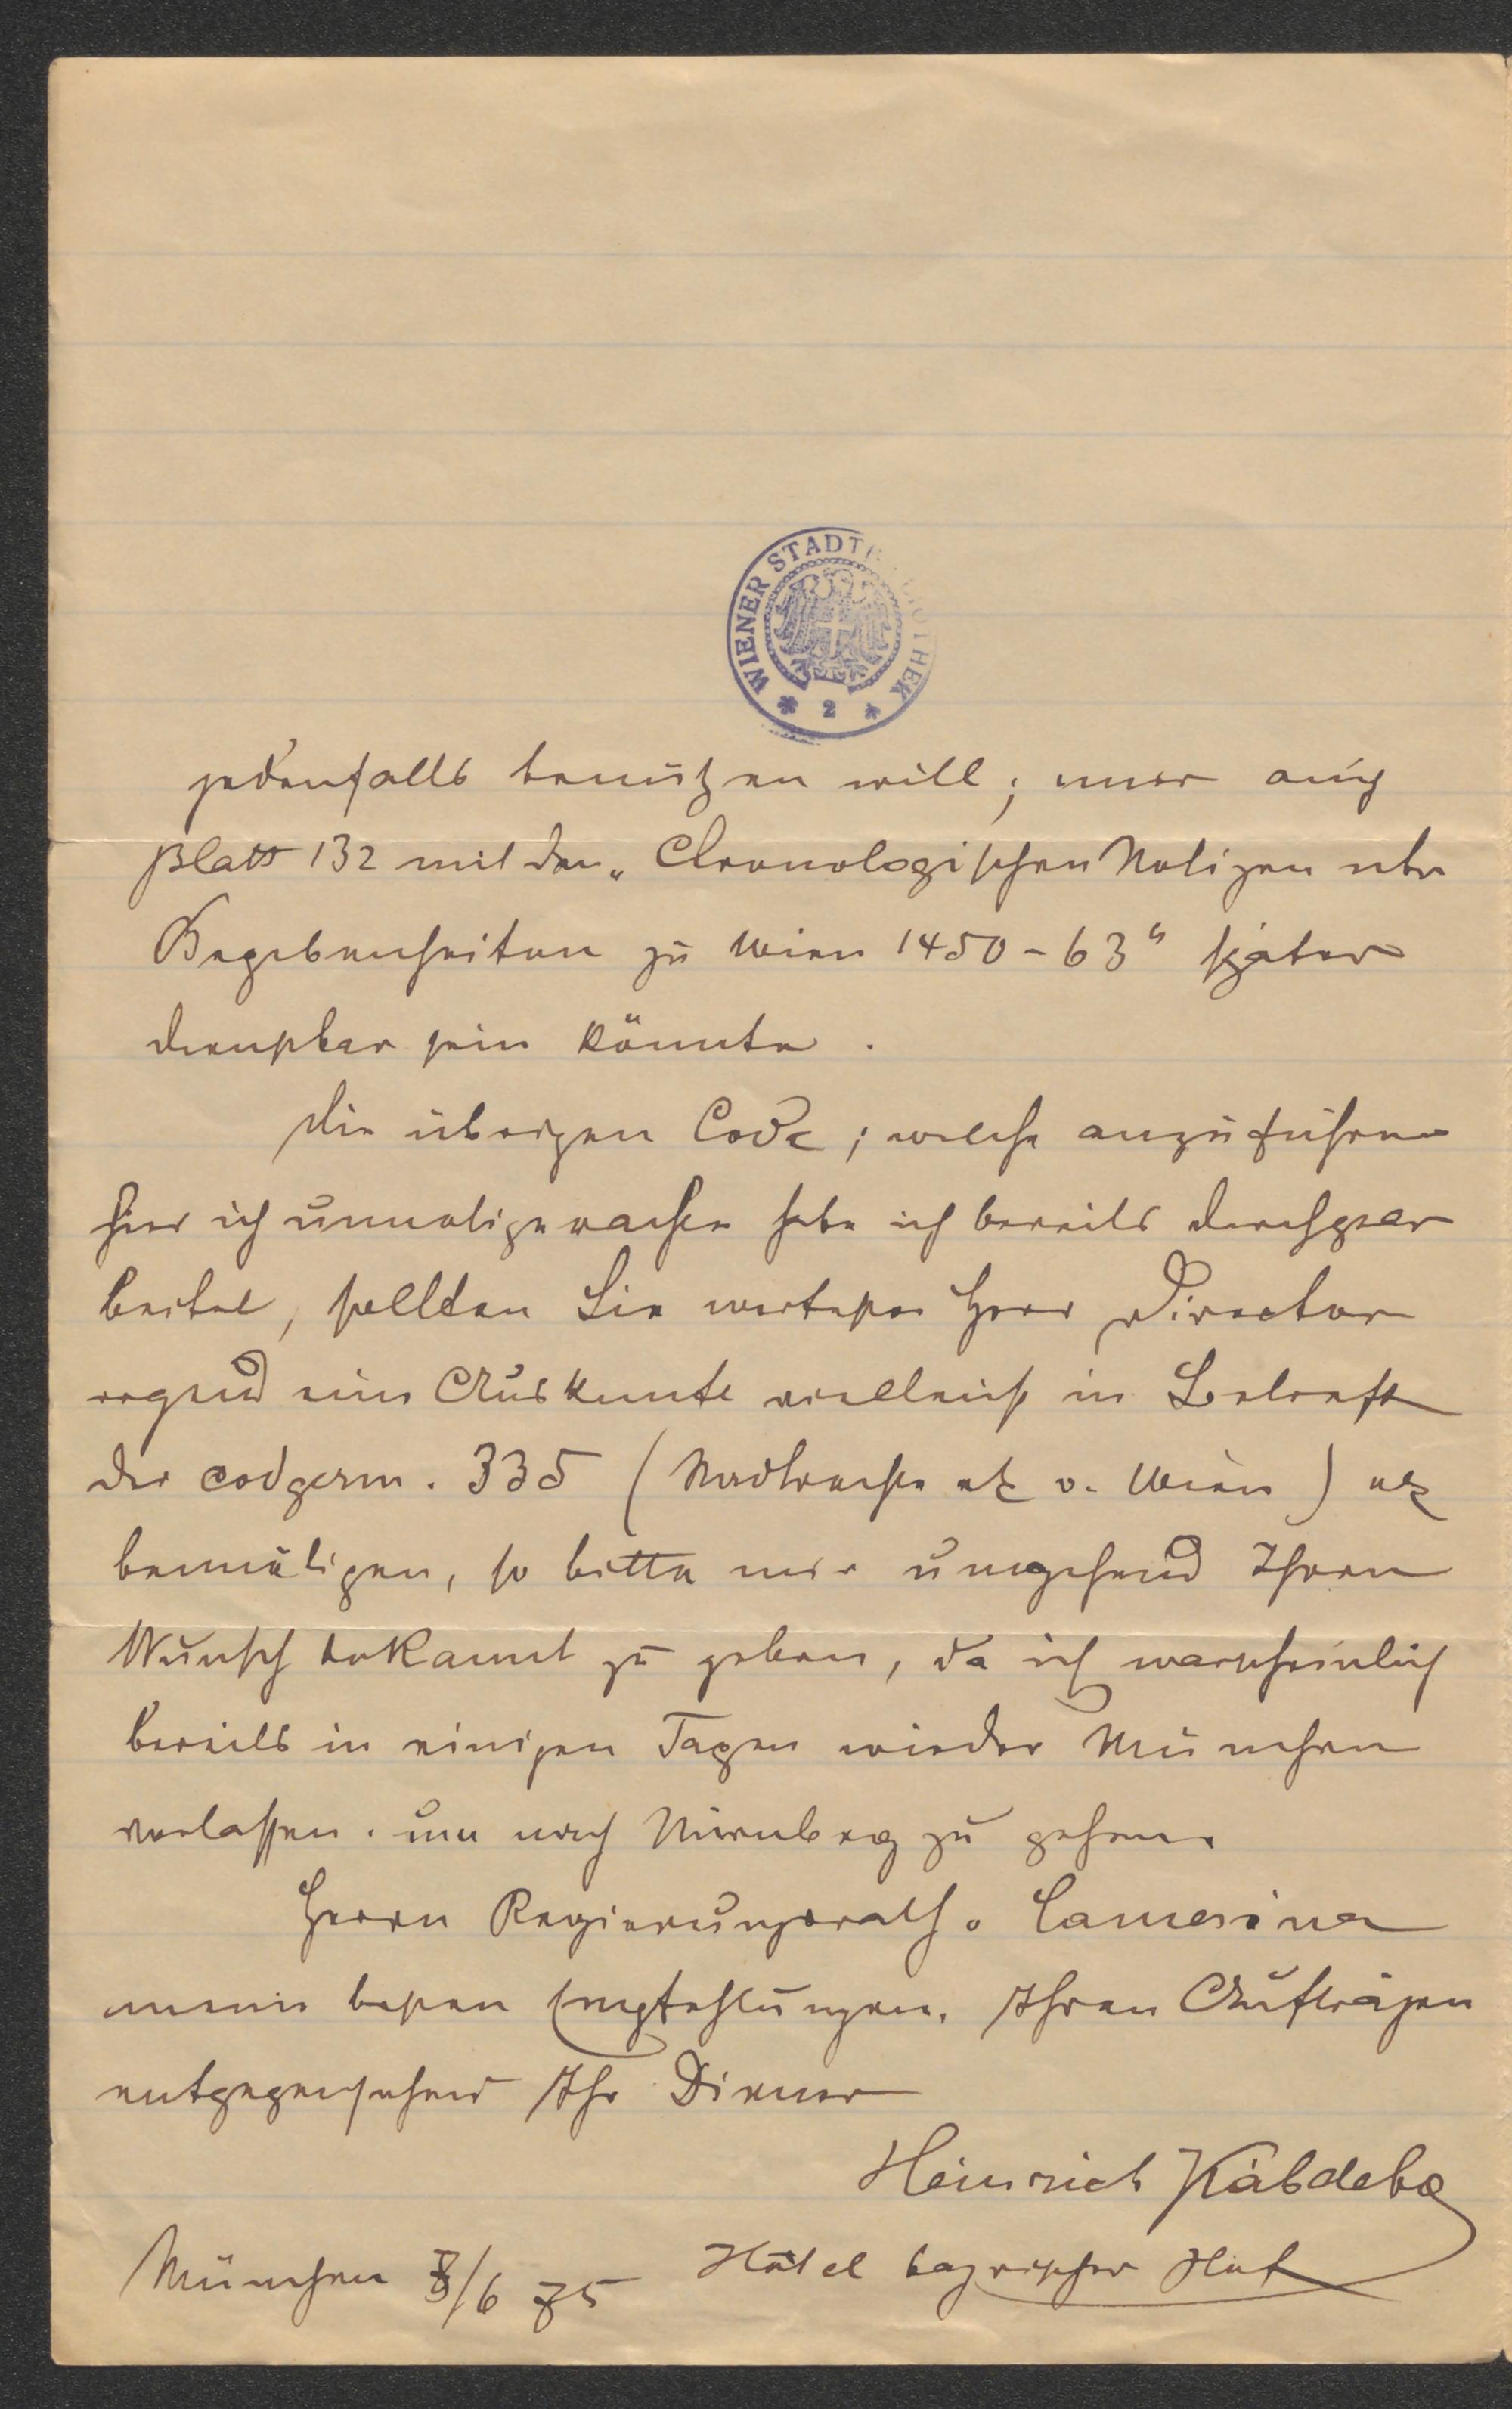 WIENER STADTBIBLIOTHEK
* 2 *
jedenfalls benützen will; mir auch
Blatt 132 mit den „Chronologischen Notizen über
Begebenheiten zu Wien 1450-63“ später
dienstbar sein könnte.
Die übrigen Codc; welche anzuführen
hier ich habe ich bereits durchgear
beitet, sollten Sie wertester Herr Director
irgend eine Auskunft vielleicht in Betreff
der codgerm. 335 (Stadtrechte etc v. Wien) etc
bennötigen, so bitte mir umgehend Ihren
Wunsch bekannt zu geben, da ich warscheinlich
bereits in einigen Tagen wieder München
verlassen. um nach Nürnberg zu gehen.
Herrn Regierungsrath. Camesina
meine besten Empfehlungen. Ihren Aufträgen
entgegensehend Ihr Diener
Heinrich Kábdebo
München 8/6 75 Hôtel bayrischer Hof